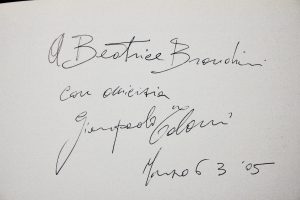 A Beatrice Brandini
con amicizia
Gianpaolo
6 3 '05